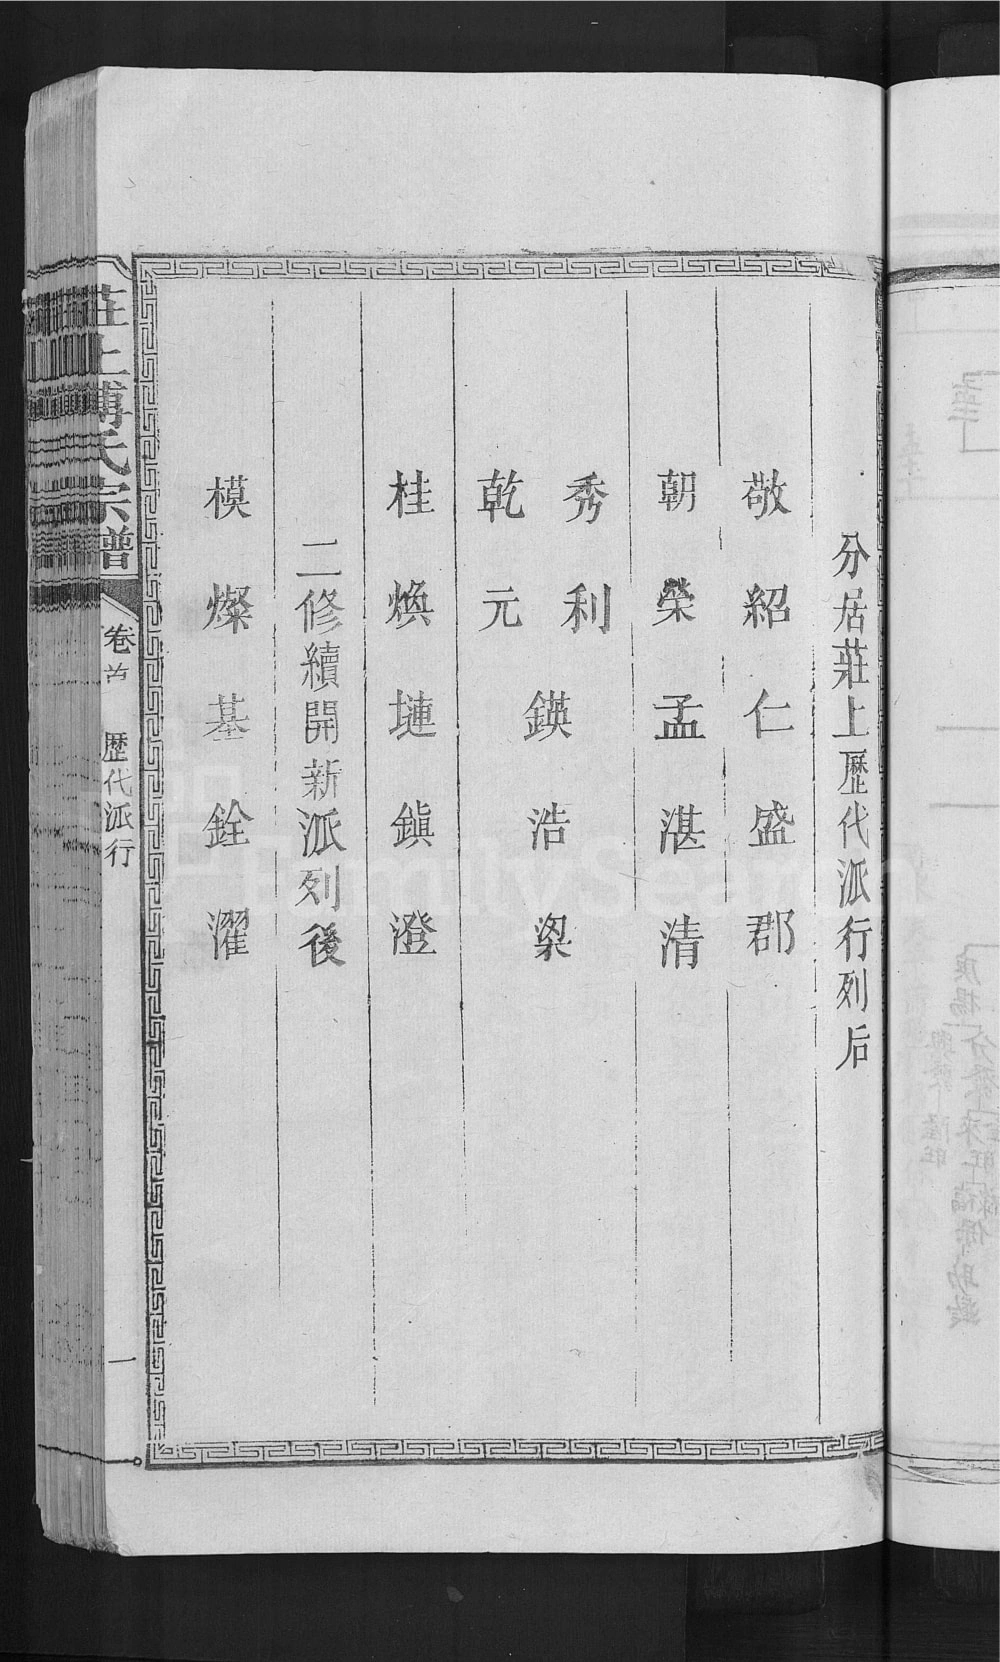 分居莊上歷代派行列后
敬紹仁盛郡
朝榮孟湛清
秀利
乾元
鍈浩梁
桂煥㙻鎭澄
二修續開新派列後
模燦基銓濯
莊上傅氏宗譜
卷首
歷代派行
一